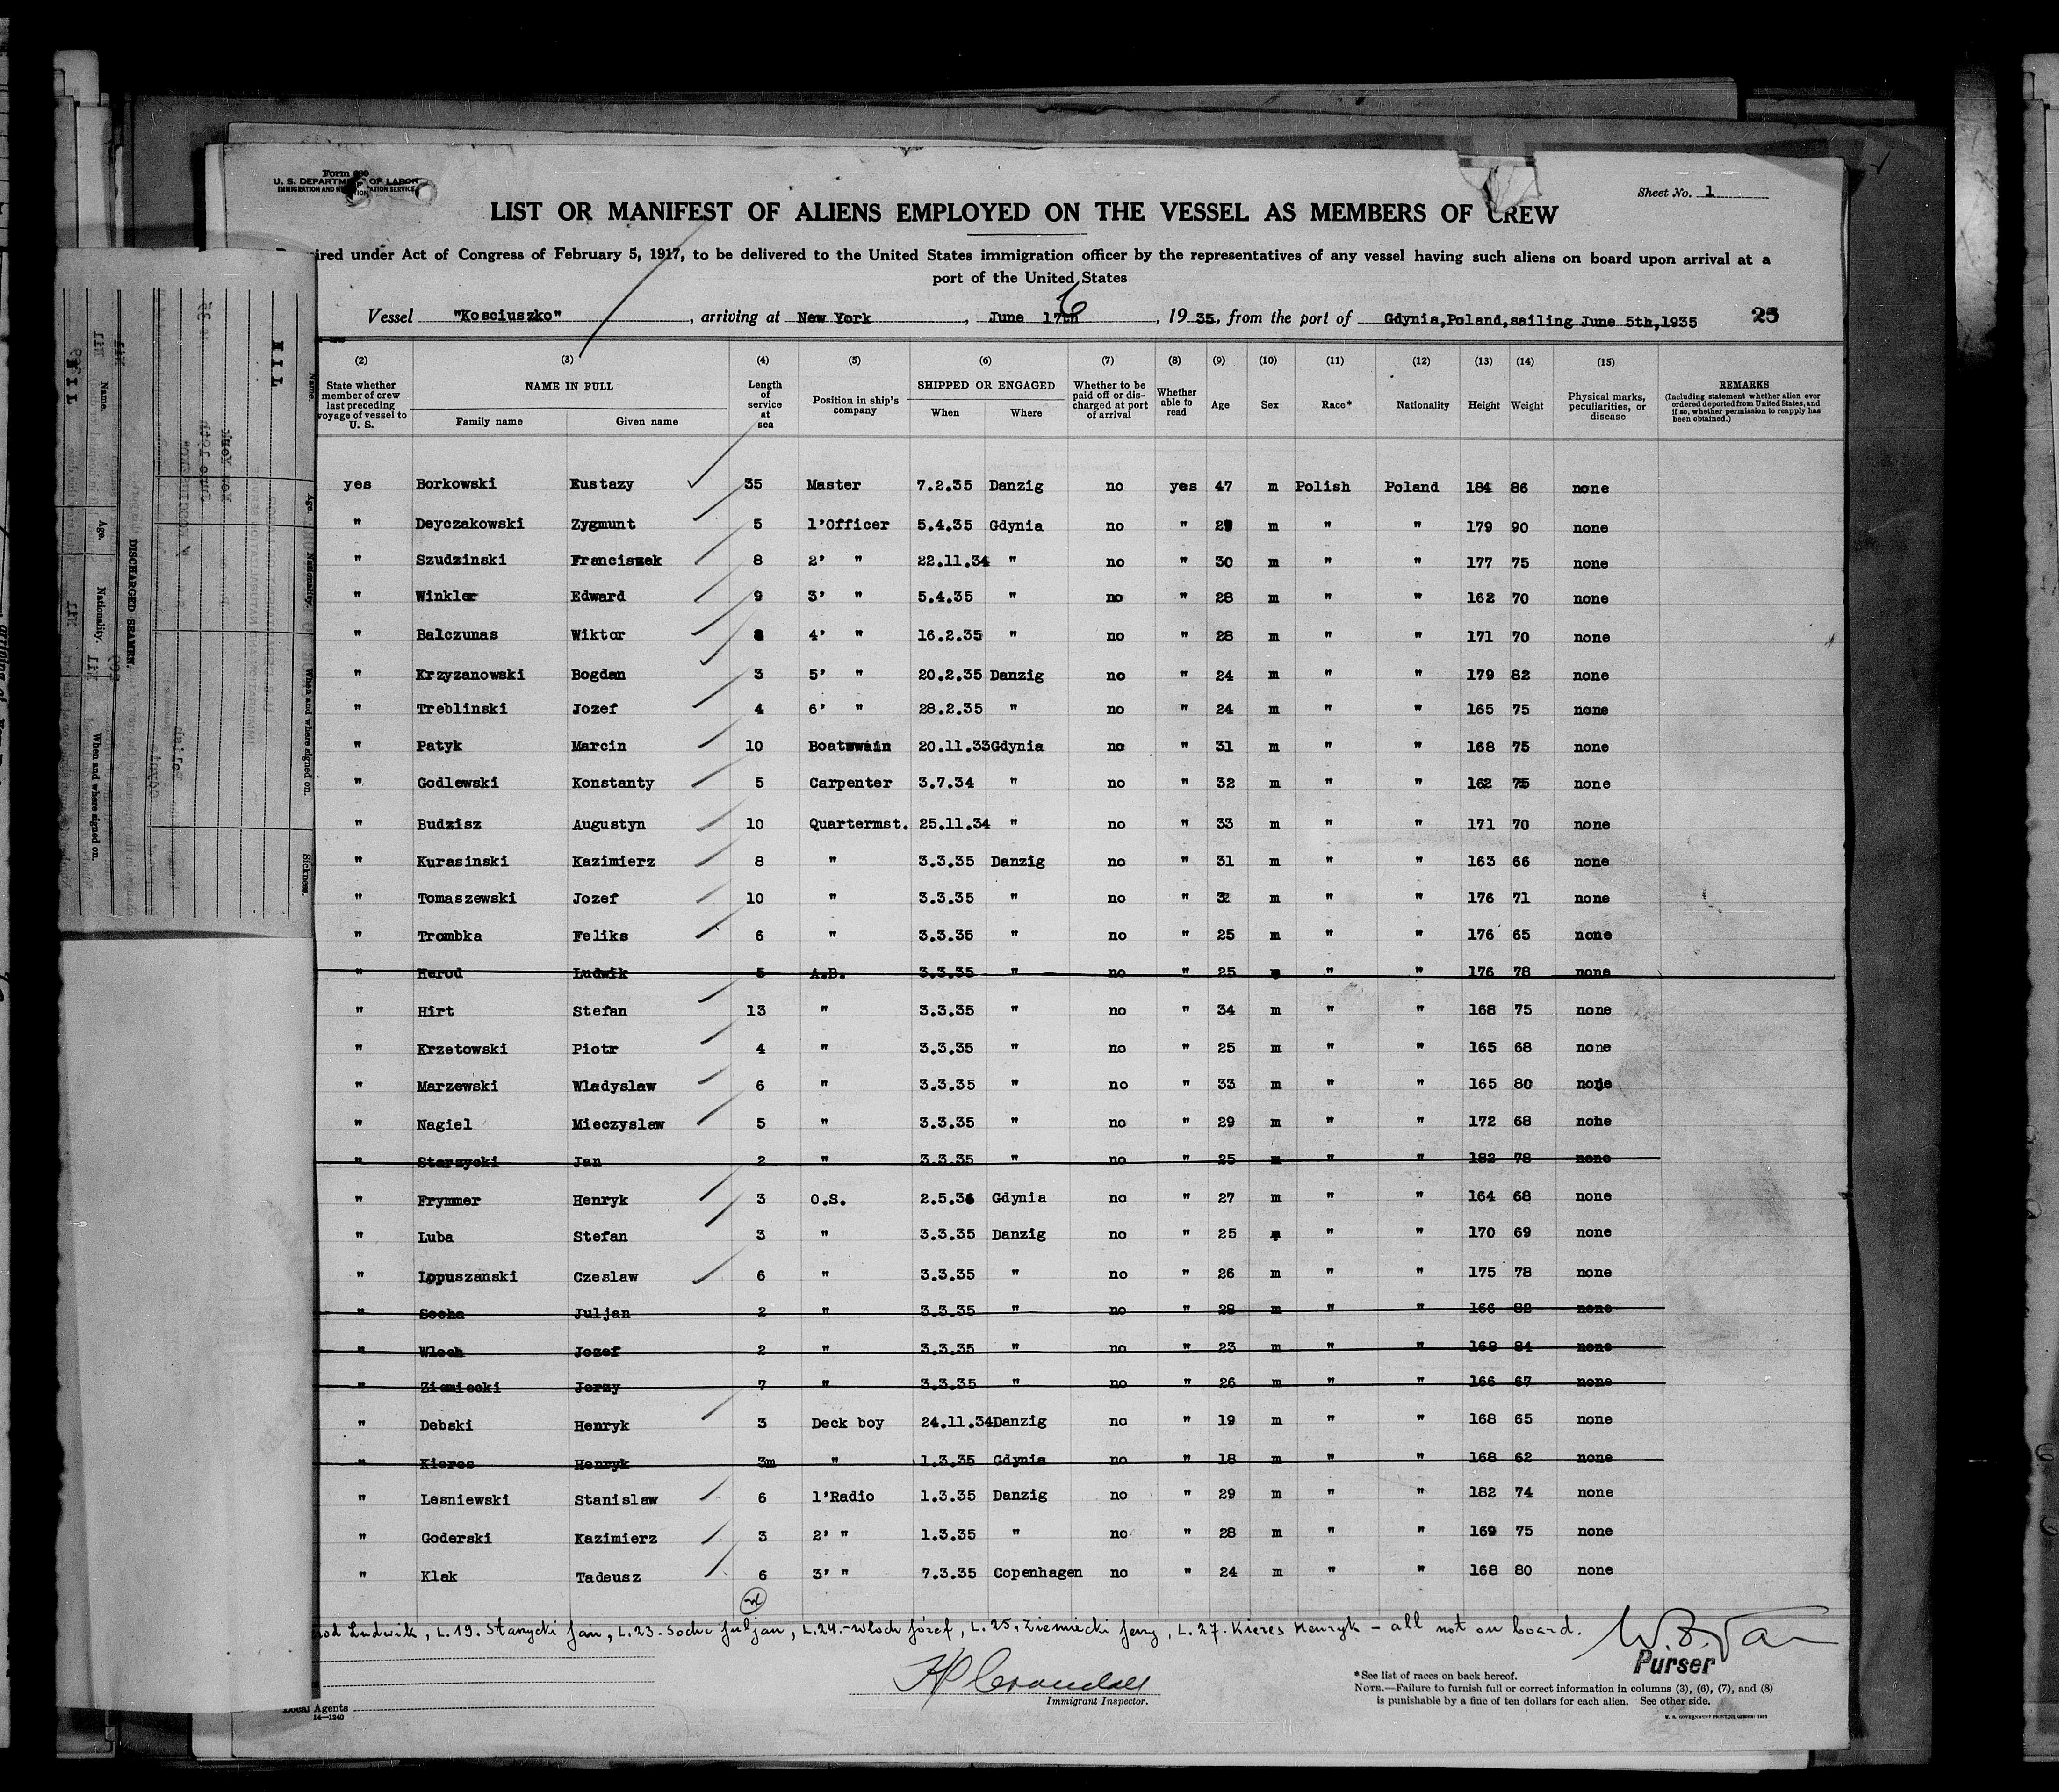 Form 680
U. S. DEPARTMENT OF LABOR
IMMIGRATION AND NATURALIZATION SERVICE
Sheet No. 1
LIST OR MANIFEST OF ALIENS EMPLOYED ON THE VESSEL AS MEMBERS OF CREW
ired under Act of Congress of February 5, 1917, to be delivered to the United States immigration officer by the representatives of any vessel having such aliens on board upon arrival at a
port of the United States
Vessel "Kosciuszko", arriving at New York, June 17th 6, 1935, from the port of Gdynia,Poland,sailing June 5th,1935 25
(2) (3) (4) (5) (6) (7) (8) (9) (10) (11) (12) (13) (14) (15)
State whether member of crew last preceding voyage of vessel to U. S. NAME IN FULL Family name Given name Length of service at sea Position in ship's company SHIPPED OR ENGAGED When Where Whether to be paid off or discharged at port of arrival Whether able to read Age Sex Race* Nationality Height Weight Physical marks, peculiarities, or disease REMARKS (Including statement whether alien ever ordered deported from United States, and if so, whether permission to reapply has been obtained.)
yes Borkowski Eustazy 35 Master 7.2.35 Danzig no yes 47 m Polish Poland 184 86 none
" Deyczakowski Zygmunt 5 1'Officer 5.4.35 Gdynia no " 29 m " " 179 90 none
" Szudzinski Franciszek 8 2' " 22.11.34 " no " 30 m " " 177 75 none
" Winkler Edward 9 3' " 5.4.35 " no " 28 m " " 162 70 none
" Balczunas Wiktor 4' " 16.2.35 " no " 28 m " " 171 70 none
" Krzyzanowski Bogdan 3 5' " 20.2.35 Danzig no " 24 m " " 179 82 none
" Treblinski Jozef 4 6' " 28.2.35 " no " 24 m " " 165 75 none
" Patyk Marcin 10 Boatswain 20.11.33 Gdynia no " 31 m " " 168 75 none
" Godlewski Konstanty 5 Carpenter 3.7.34 " no " 32 m " " 162 75 none
" Budzisz Augustyn 10 Quartermst. 25.11.34 " no " 33 m " " 171 70 none
" Kurasinski Kazimierz 8 " 3.3.35 Danzig no " 31 m " " 163 66 none
" Tomaszewski Jozef 10 " 3.3.35 " no " 32 m " " 176 71 none
" Trombka Feliks 6 " 3.3.35 " no " 25 m " " 176 65 none
" Herod Ludwik 5 A.B. 3.3.35 " no " 25 m " " 176 78 none
" Hirt Stefan 13 " 3.3.35 " no " 34 m " " 168 75 none
" Krzetowski Piotr 4 " 3.3.35 " no " 25 m " " 165 68 none
" Marzewski Wladyslaw 6 " 3.3.35 " no " 33 m " " 165 80 none
" Nagiel Mieczyslaw 5 " 3.3.35 " no " 29 m " " 172 68 none
" Starzycki Jan 2 " 3.3.35 " no " 25 m " " 182 78 none
" Frymmer Henryk 3 O.S. 2.5.34 Gdynia no " 27 m " " 164 68 none
" Luba Stefan 3 " 3.3.35 Danzig no " 25 m " " 170 69 none
" Lopuszanski Czeslaw 6 " 3.3.35 " no " 26 m " " 175 78 none
" Socha Juljan 2 " 3.3.35 " no " 28 m " " 166 82 none
" Wloch Jozef 2 " 3.3.35 " no " 23 m " " 168 84 none
" Ziemiecki Jerzy 7 " 3.3.35 " no " 26 m " " 166 67 none
" Debski Henryk 3 Deck boy 24.11.34 Danzig no " 19 m " " 168 65 none
" Kieres Henryk 3m " 1.3.35 Gdynia no " 18 m " " 168 62 none
" Lesniewski Stanislaw 6 1'Radio 1.3.35 Danzig no " 29 m " " 182 74 none
" Goderski Kazimierz 3 2' " 1.3.35 " no " 28 m " " 169 75 none
" Klak Tadeusz 6 3' " 7.3.35 Copenhagen no " 24 m " " 168 80 none
rod Ludwik, L.19. Starzycki Jan, L.23. Socha Juljan, L.24.-Wloch Józef, L.25. Ziemiecki Jerzy, L.27. Kieres Henryk - all not on board.
Purser
Immigrant Inspector.
*See list of races on back hereof.
NOTE.—Failure to furnish full or correct information in columns (3), (6), (7), and (8)
is punishable by a fine of ten dollars for each alien. See other side.
Local Agents
14—1240
U. S. GOVERNMENT PRINTING OFFICE: 1932
NIL
Name. Age. Nationality. When and where signed on. Sickness.
DISCHARGED SEAMEN.
Name. Age. Nationality. When and where signed on.
NIL